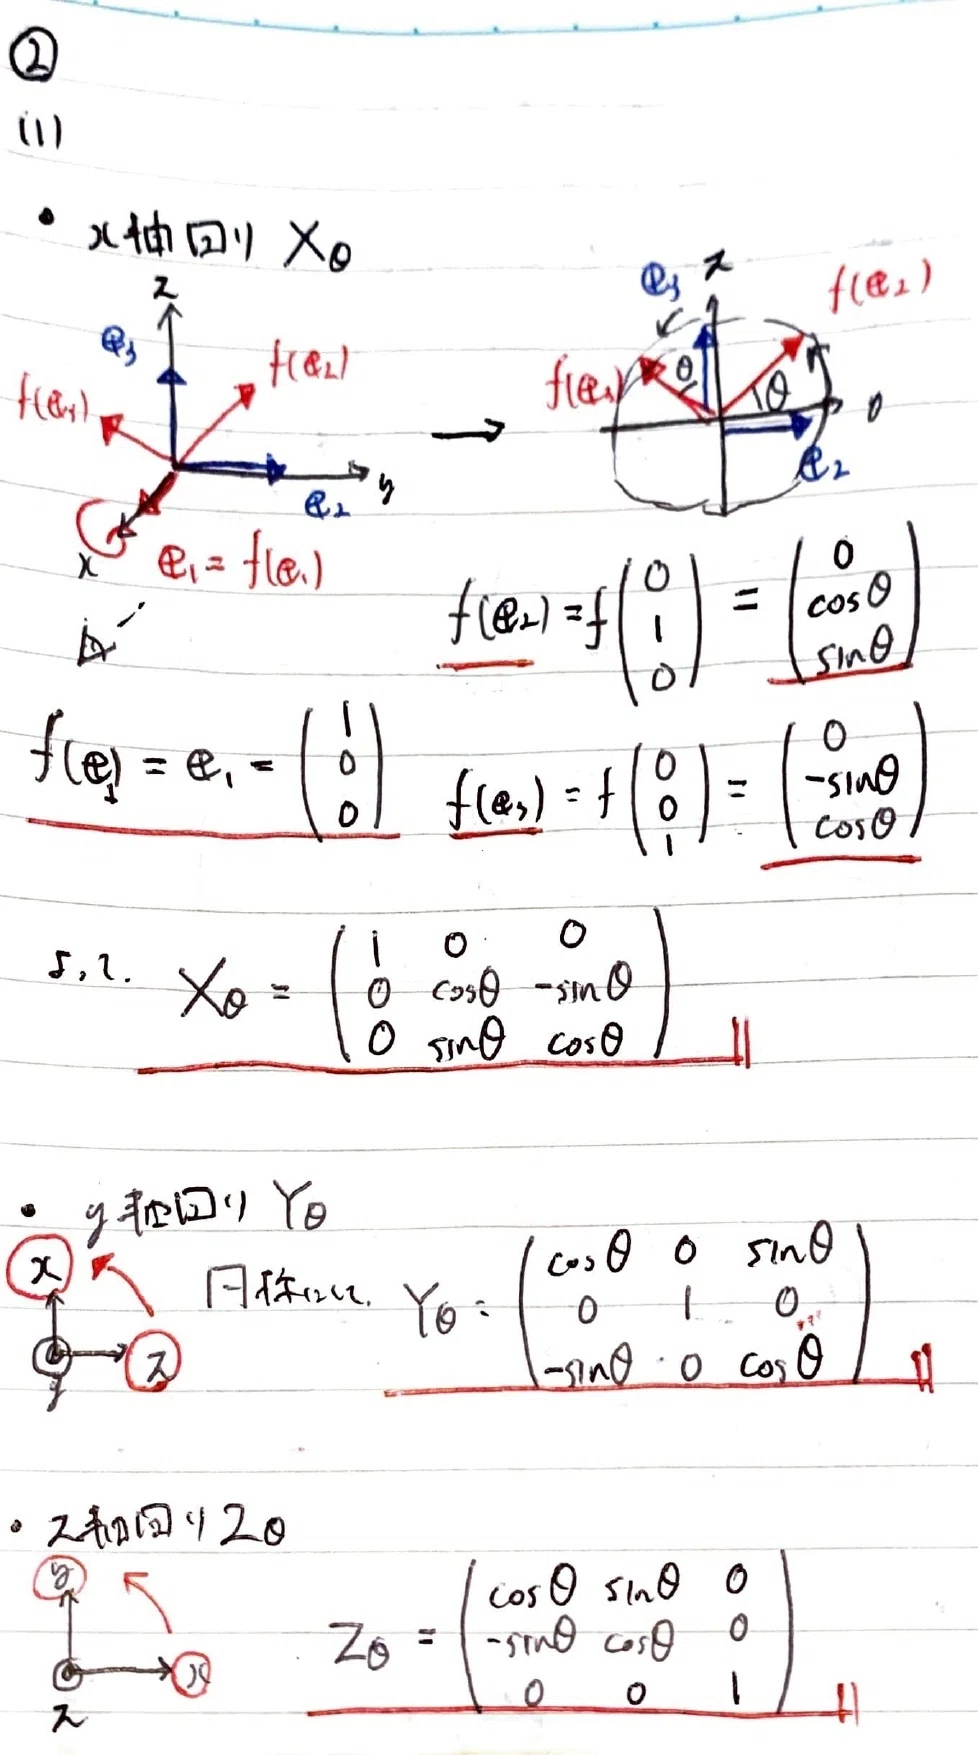 ②
(1)
・x軸回り Xθ
z e₃ f(e₃) f(e₂) y e₂ x e₁ = f(e₁)
→
e₃ z f(e₂) f(e₃) θ θ 0 e₂
f(e₂) = f(0 1 0) = (0 cosθ sinθ)
f(e₁) = e₁ = (1 0 0)
f(e₃) = f(0 0 1) = (0 -sinθ cosθ)
よって. Xθ =
(1 0 0
0 cosθ -sinθ
0 sinθ cosθ)
・y軸回り Yθ
x z y
同様にして. Yθ =
(cosθ 0 sinθ
0 1 0
-sinθ 0 cosθ)
・z軸回り Zθ
y x z
Zθ =
(cosθ sinθ 0
-sinθ cosθ 0
0 0 1)